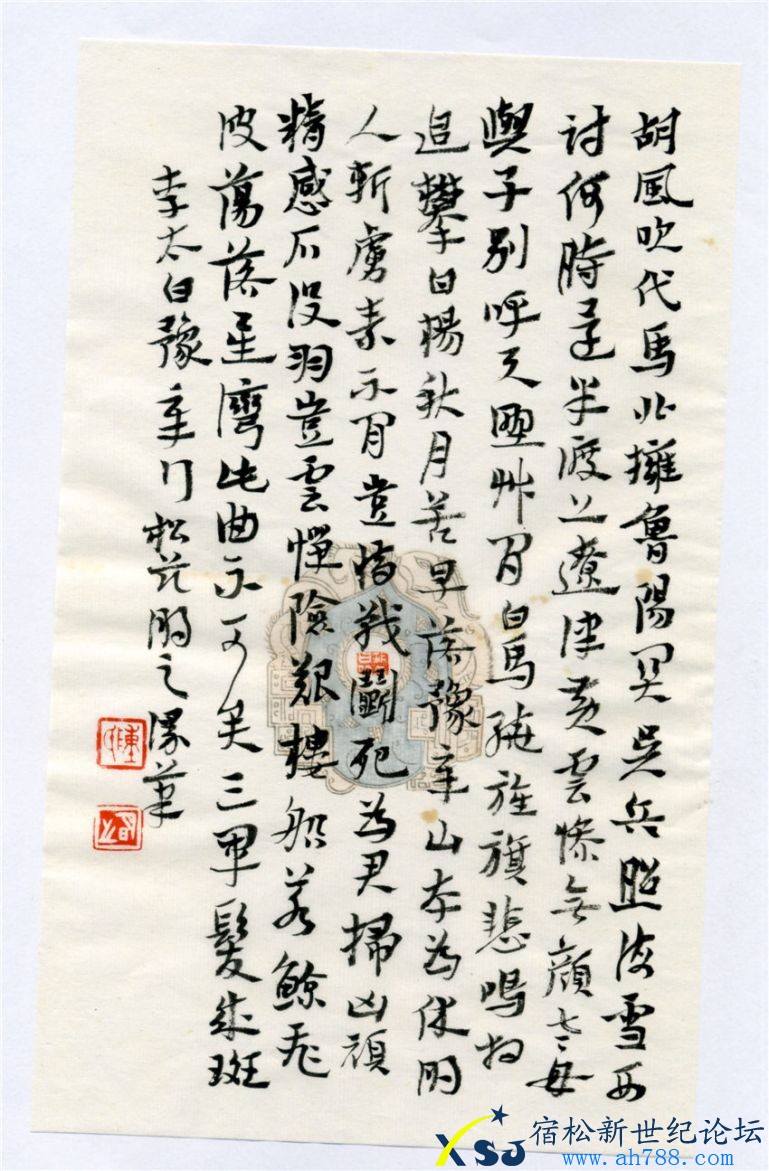 胡風吹代馬北擁魯陽関吳兵照海雪西
討何時還半渡上遼津黃雲慘無顏老母
與子別呼天野艸間白馬繞旌旗悲鳴相
追攀白楊秋月苦早落豫章山本為休明
人斬虜素不閒豈惜戰鬭死為君掃凶頑
精感石没羽豈雲憚險艱樓船若鯨飛
波蕩落星灣此曲不可奏三軍髮成斑
李太白豫章行 松 明之
宿松新世纪论坛
XSJ www.ah788.com